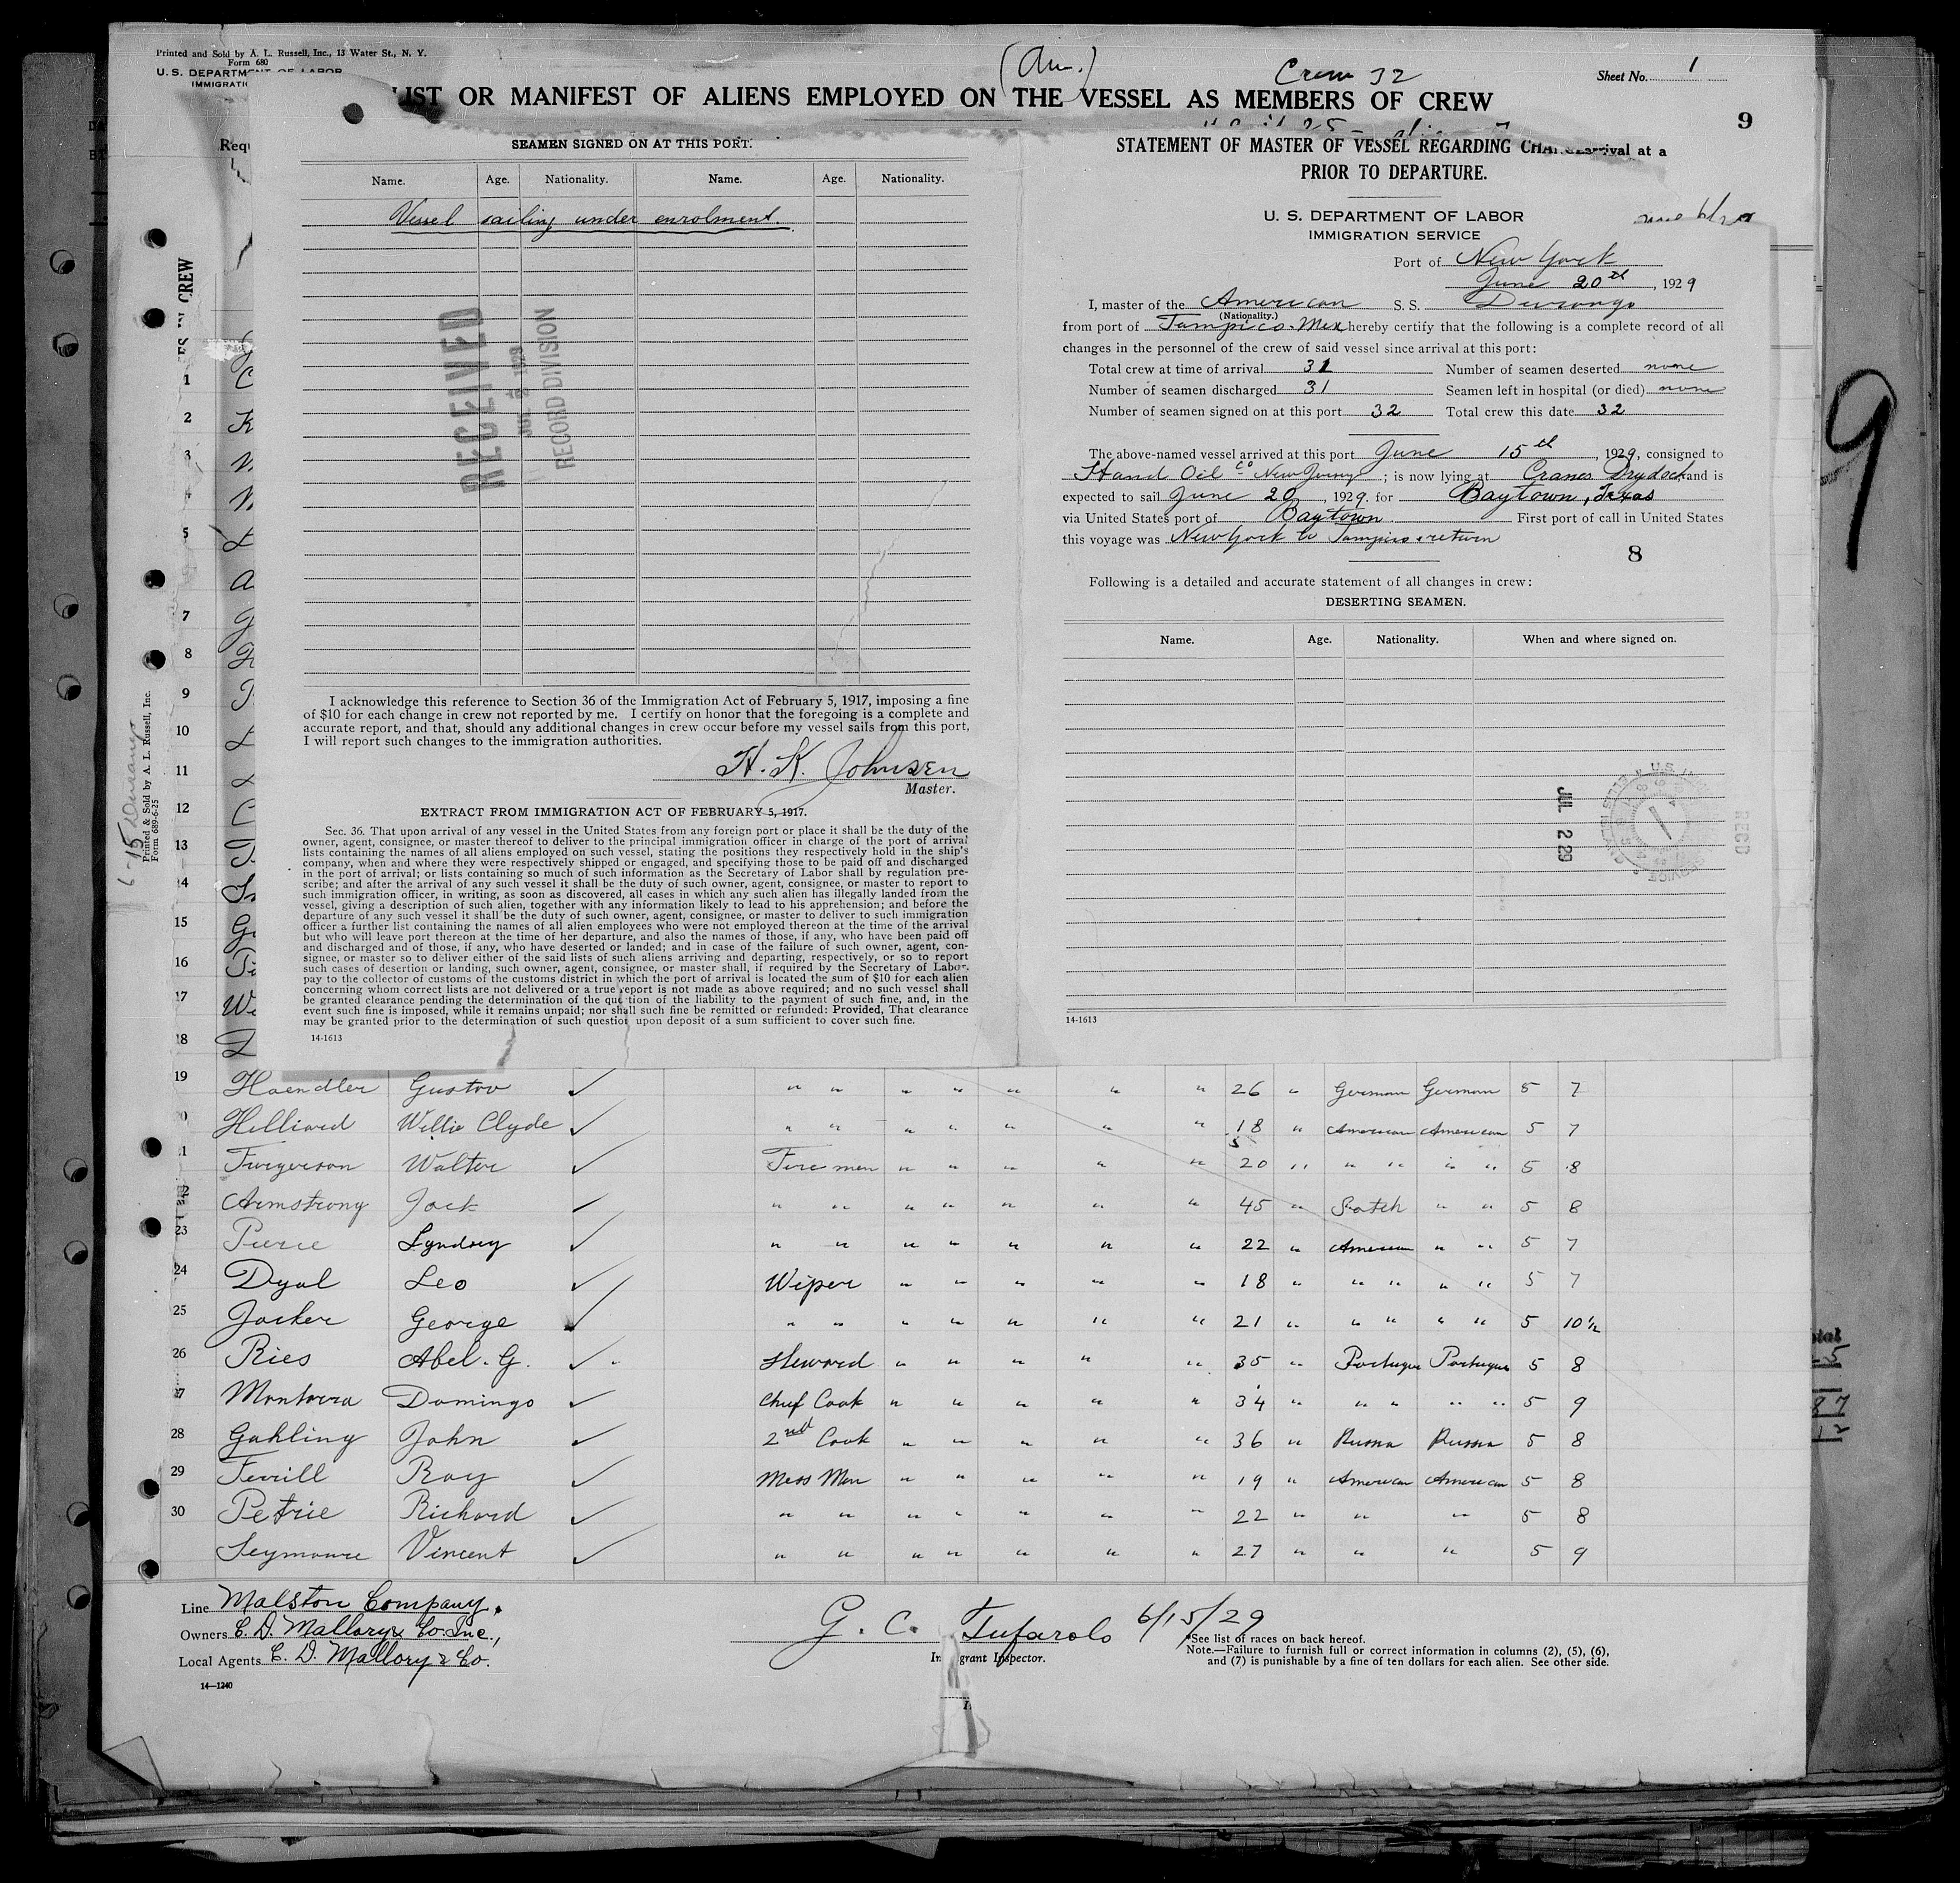 Printed and Sold by A. L. Russell, Inc., 13 Water St., N. Y.
Form 680
U. S. DEPARTMENT OF LABOR
(Am.)
Crew 32
Sheet No. 1
LIST OR MANIFEST OF ALIENS EMPLOYED ON THE VESSEL AS MEMBERS OF CREW
9
SEAMEN SIGNED ON AT THIS PORT.
Name. Age. Nationality. Name. Age. Nationality.
Vessel sailing under enrolment.
RECEIVED
RECORD DIVISION
I acknowledge this reference to Section 36 of the Immigration Act of February 5, 1917, imposing a fine
of $10 for each change in crew not reported by me. I certify on honor that the foregoing is a complete and
accurate report, and that, should any additional changes in crew occur before my vessel sails from this port,
I will report such changes to the immigration authorities.
H. K. Johnsen
Master.
EXTRACT FROM IMMIGRATION ACT OF FEBRUARY 5, 1917.
Sec. 36. That upon arrival of any vessel in the United States from any foreign port or place it shall be the duty of the
owner, agent, consignee, or master thereof to deliver to the principal immigration officer in charge of the port of arrival
lists containing the names of all aliens employed on such vessel, stating the positions they respectively hold in the ship's
company, when and where they were respectively shipped or engaged, and specifying those to be paid off and discharged
in the port of arrival; or lists containing so much of such information as the Secretary of Labor shall by regulation pre-
scribe; and after the arrival of any such vessel it shall be the duty of such owner, agent, consignee, or master to report to
such immigration officer, in writing, as soon as discovered, all cases in which any such alien has illegally landed from the
vessel, giving a description of such alien, together with any information likely to lead to his apprehension; and before the
departure of any such vessel it shall be the duty of such owner, agent, consignee, or master to deliver to such immigration
officer a further list containing the names of all alien employees who were not employed thereon at the time of the arrival
but who will leave port thereon at the time of her departure, and also the names of those, if any, who have been paid off
and discharged and of those, if any, who have deserted or landed; and in case of the failure of such owner, agent, con-
signee, or master so to deliver either of the said lists of such aliens arriving and departing, respectively, or so to report
such cases of desertion or landing, such owner, agent, consignee, or master shall, if required by the Secretary of Labor,
pay to the collector of customs of the customs district in which the port of arrival is located the sum of $10 for each alien
concerning whom correct lists are not delivered or a true report is not made as above required; and no such vessel shall
be granted clearance pending the determination of the question of the liability to the payment of such fine, and, in the
event such fine is imposed, while it remains unpaid; nor shall such fine be remitted or refunded: Provided, That clearance
may be granted prior to the determination of such question upon deposit of a sum sufficient to cover such fine.
14-1613
STATEMENT OF MASTER OF VESSEL REGARDING
PRIOR TO DEPARTURE.
U. S. DEPARTMENT OF LABOR
IMMIGRATION SERVICE
Port of New York
June 20th, 1929
I, master of the American S. S. Durango
(Nationality.)
from port of Tampico. Mex hereby certify that the following is a complete record of all
changes in the personnel of the crew of said vessel since arrival at this port:
Total crew at time of arrival 31 Number of seamen deserted none
Number of seamen discharged 31 Seamen left in hospital (or died) none
Number of seamen signed on at this port 32 Total crew this date 32
The above-named vessel arrived at this port June 15th, 1929, consigned to
Stand Oil Co New Jersey; is now lying at Cranes Drydock and is
expected to sail June 20, 1929. for Baytown, Texas
via United States port of Baytown. First port of call in United States
this voyage was New York to Tampico & return
8
Following is a detailed and accurate statement of all changes in crew:
DESERTING SEAMEN.
Name. Age. Nationality. When and where signed on.
JUL 2 29
REC'D
14-1613
9
6-15 Durango
Printed & Sold by A. L. Russell, Inc.
Form 689-6-25
1
2
3
4
5
7
8
9
10
11
12
13
14
15
16
17
18
19 Haendler Gustav ✓ " " " " " " " 26 " German German 5 7
20 Hilliard Willie Clyde ✓ " " " " " " " 18 " American American 5 7
21 Furgerson Walter ✓ Firemen " " " " " 20 " " " " " 5 8
22 Armstrong Jack ✓ " " " " " " " 45 " Scotch " " 5 8
23 Pierce Lyndsey ✓ " " " " " " " 22 " American " " 5 7
24 Dyal Leo ✓ Wiper " " " " " 18 " " " " " 5 7
25 Jacker George ✓ " " " " " " " 21 " " " " " 5 10 1/2
26 Ries Abel. G. ✓ Steward " " " " " 35 " Portugue Portugue 5 8
27 Montoera Domingo ✓ Chief Cook " " " " " 34 " " " " " 5 9
28 Gahling John ✓ 2nd Cook " " " " " 36 " Russia Russia 5 8
29 Ferrill Ray ✓ Mess Men " " " " " 19 " American American 5 8
30 Petrie Richard ✓ " " " " " " " 22 " " " 5 8
Seymoure Vincent ✓ " " " " " " " 27 " " " 5 9
Line Malston Company.
Owners C. D. Mallory & Co. Inc.,
Local Agents C. D. Mallory & Co.
14—1240
G. C. Tufarolo 6/15/29
Immigrant Inspector.
*See list of races on back hereof.
Note.—Failure to furnish full or correct information in columns (2), (5), (6),
and (7) is punishable by a fine of ten dollars for each alien. See other side.